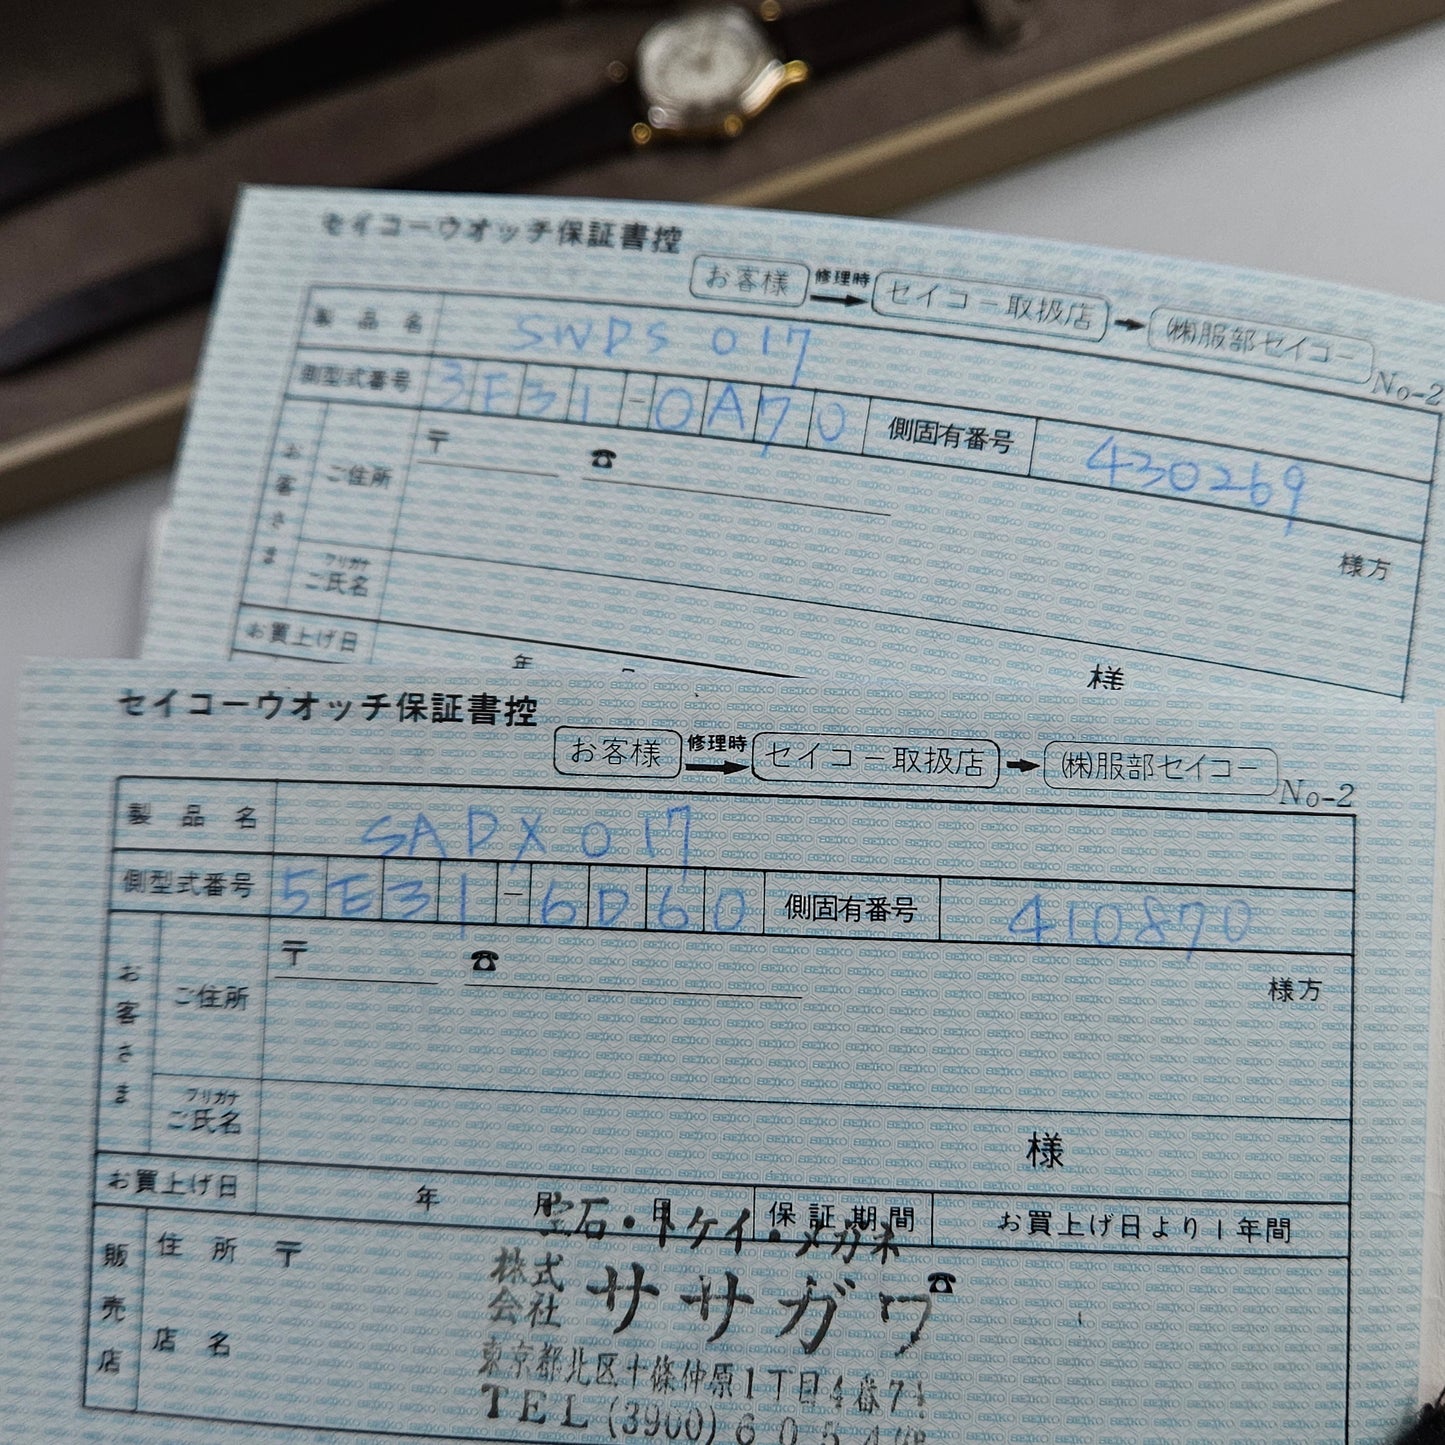 セイコーウオッチ保証書控
お客様 修理時 セイコー取扱店 ㈱服部セイコー
No-2
製品名 SWDS 017
側型式番号 3E31-0A70 側固有番号 430269
お客さま ご住所 〒 ☎ 様方
フリガナ
ご氏名 様
お買上げ日 年
セイコーウオッチ保証書控
お客様 修理時 セイコー取扱店 ㈱服部セイコー
No-2
製品名 SADX017
側型式番号 5E31-6D60 側固有番号 410870
お客さま ご住所 〒 ☎ 様方
フリガナ
ご氏名 様
お買上げ日 年 月 日 保証期間 お買上げ日より1年間
宝石・トケイ・メガネ
販売店 住所 〒
株式会社 ササガワ ☎
店名
東京都北区十條仲原1丁目4番7
TEL (3900) 6054